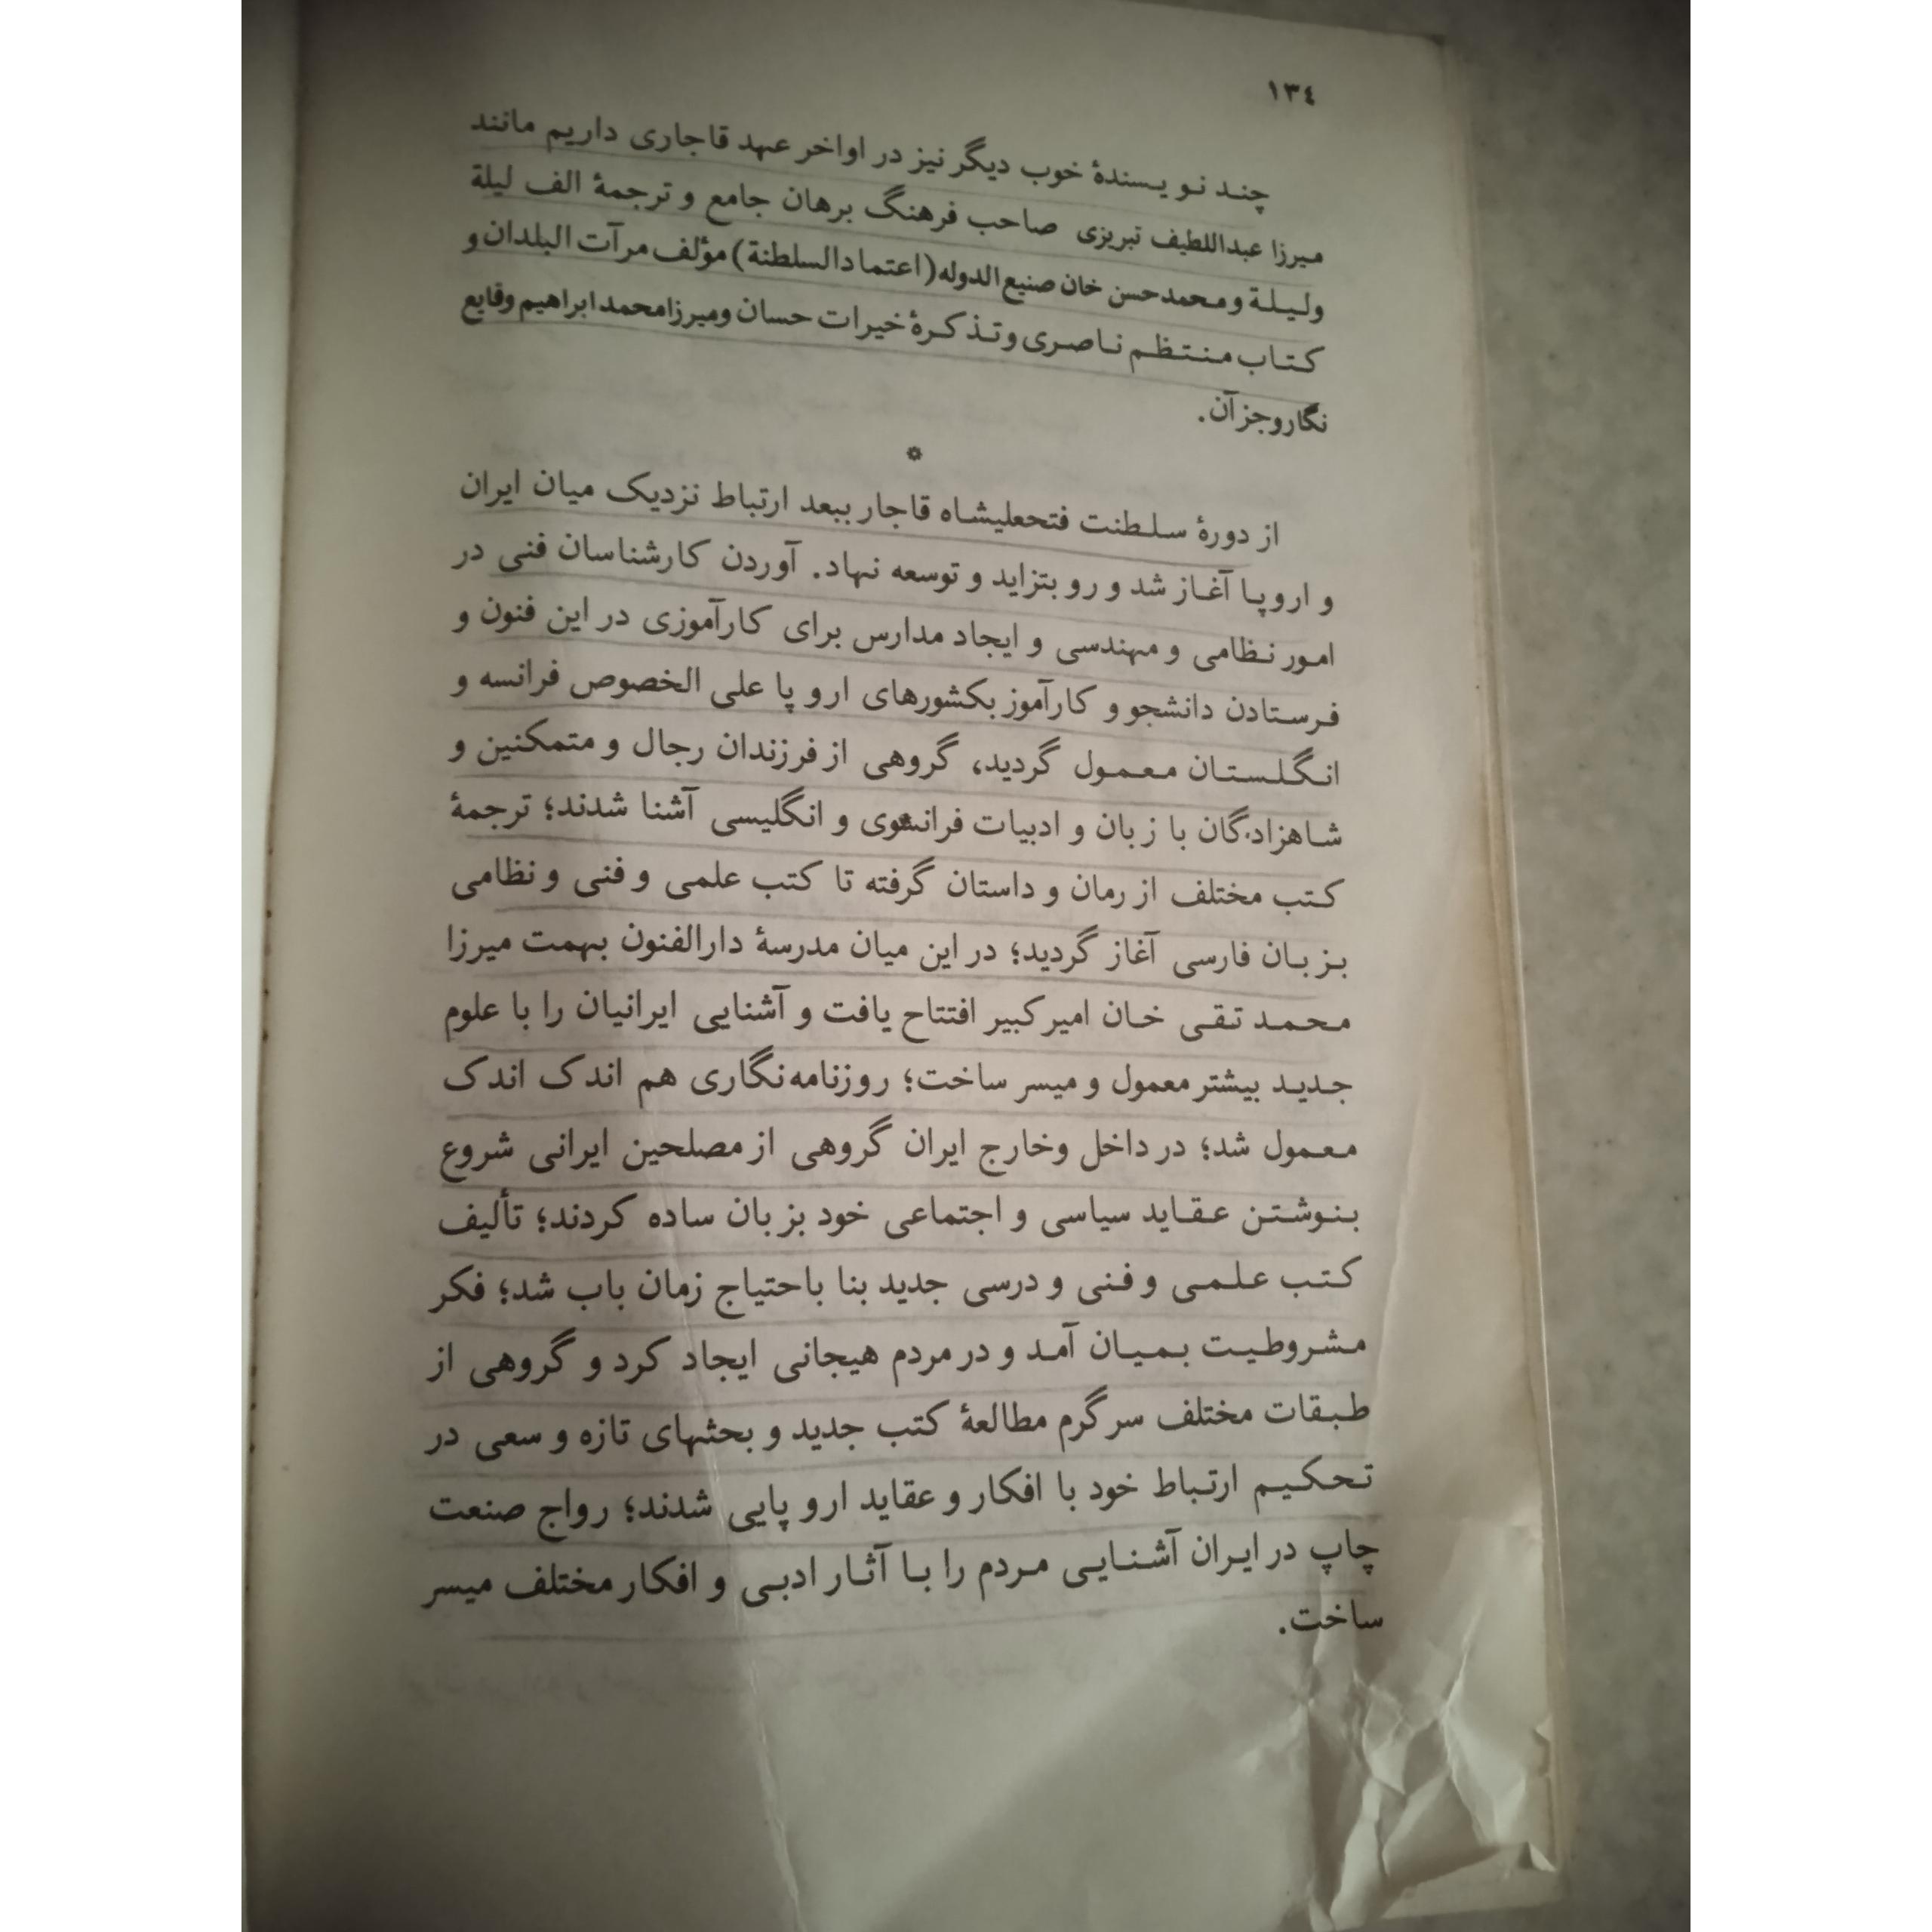 ١٣٤
چند نویسندهٔ خوب دیگر نیز در اواخر عهد قاجاری داریم مانند
میرزا عبداللطیف تبریزی صاحب فرهنگ برهان جامع و ترجمهٔ الف لیلة
ولیلة و محمدحسن خان صنیع الدوله (اعتماد السلطنة) مؤلف مرآت البلدان و
کتاب منتظم ناصری و تذکرهٔ خیرات حسان و میرزا محمد ابراهیم وقایع
نگار و جز آن.
*
از دورهٔ سلطنت فتحعلیشاه قاجار ببعد ارتباط نزدیک میان ایران
و اروپا آغاز شد و رو بتزاید و توسعه نهاد. آوردن کارشناسان فنی در
امور نظامی و مهندسی و ایجاد مدارس برای کارآموزی در این فنون و
فرستادن دانشجو و کارآموز بکشورهای اروپا علی الخصوص فرانسه و
انگلستان معمول گردید، گروهی از فرزندان رجال و متمکنین و
شاهزادگان با زبان و ادبیات فرانسوی و انگلیسی آشنا شدند؛ ترجمهٔ
کتب مختلف از رمان و داستان گرفته تا کتب علمی و فنی و نظامی
بزبان فارسی آغاز گردید؛ در این میان مدرسهٔ دارالفنون بهمت میرزا
محمد تقی خان امیرکبیر افتتاح یافت و آشنایی ایرانیان را با علوم
جدید بیشتر معمول و میسر ساخت؛ روزنامه نگاری هم اندک اندک
معمول شد؛ در داخل وخارج ایران گروهی از مصلحین ایرانی شروع
بنوشتن عقاید سیاسی و اجتماعی خود بزبان ساده کردند؛ تألیف
کتب علمی و فنی و درسی جدید بنا باحتیاج زمان باب شد؛ فکر
مشروطیت بمیان آمد و در مردم هیجانی ایجاد کرد و گروهی از
طبقات مختلف سرگرم مطالعهٔ کتب جدید و بحثهای تازه و سعی در
تحکیم ارتباط خود با افکار و عقاید اروپایی شدند؛ رواج صنعت
چاپ در ایران آشنایی مردم را با آثار ادبی و افکار مختلف میسر
ساخت.